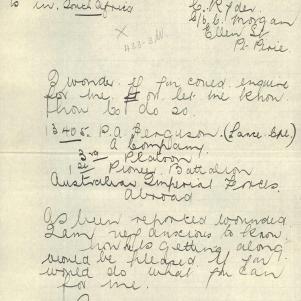 to in. South Africa
C. Ryder
c/o C. Morgan
Ellen St
Pt. Pirie.
I wonder if you could enquire
for me or let me know
how to do so.
3405. P. A. Ferguson. (Lance Cpl)
A Company.
3rd Platoon
1st Pioneer Battalion
Australian Imperial Forces
Abroad
As been reported wounded
I am very anxious to know
how he is getting along
would be pleased if you
would do what you can
for me.